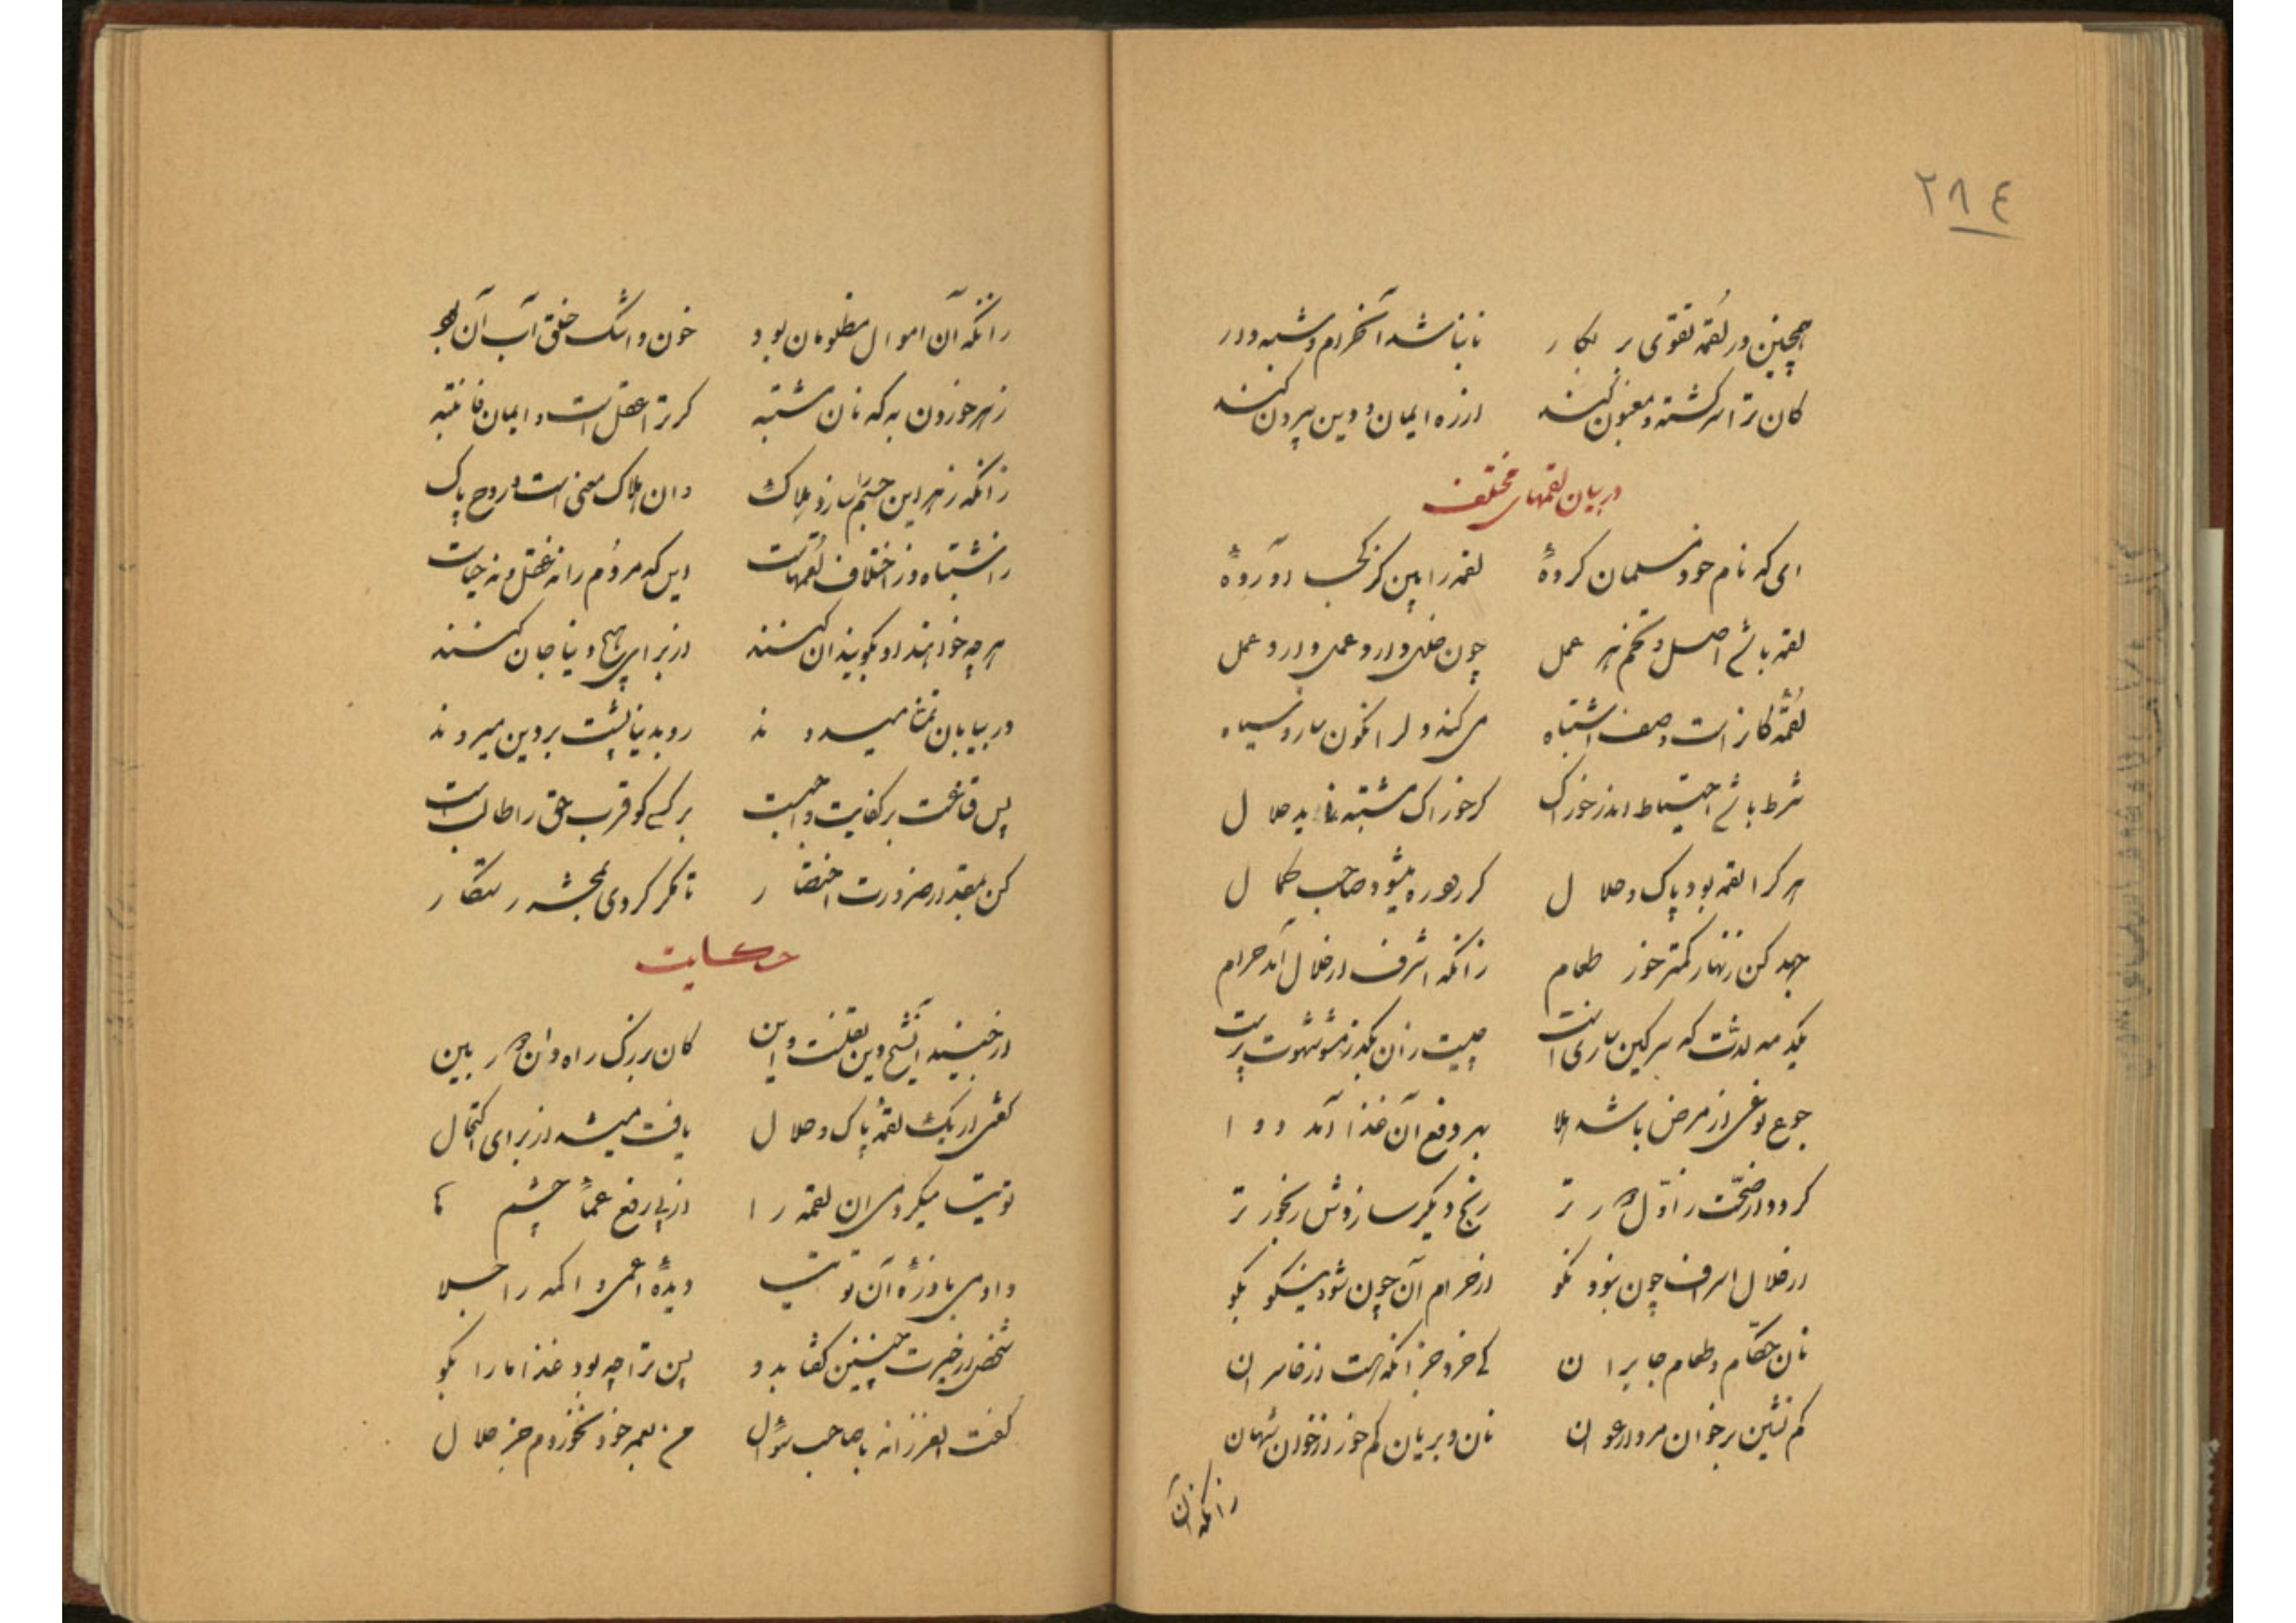 ٢٨٤
همچنین در لقمه تقوی بر بکار نا نباشد آن حرام و شبهه دار
کان ترا سرگشته و مغبون کند از ره ایمان و دین بیرون کند
در بیان لقمهای مختلف
ای که نام خود مسلمان کردهٔ لقمه را بین کز کجا آوردهٔ
لقمه باشد اصل و تخم هر عمل چون خلل دارد عمل دارد خلل
لقمهٔ کان است وصف اشتباه می کند دل را کنون سار و سیاه
شرط باشد احتیاط اندر خوراک کز خوراک مشتبه ناید حلال
هر کرا لقمه بود پاک و حلال گر بود ره میشود صاحب کمال
جهد کن زنهار کمتر خور طعام زانکه اسرف در حلال آمد حرام
یکدمه لذت که سرگین سازی است چیست زان بگذر مشو شهوت پرست
جوع نوعی از مرض باشد هلا بهر دفع آن غذا آمد دوا
گر دوا از صحت ز اول در تر رنج دیگر سازدش رنجورتر
در حلال اسراف چون نبود نکو در حرام آن چون شود نیکو بگو
نان حکام و طعام جابران کی خرد جز آنکه هست از خاسران
کم نشین بر خوان مردار عوان نان و بریان کم خور از خوان شهان
زانکه آن
زانکه آن اموال مظلومان بود خون و اشک خلق آب آن بود
زهر خوردن به که نان مشتبه گر ترا عقل است و ایمان فانتبه
زانکه زهر این جسم سازد هلاک و ان هلاک معنی است و روح پاک
ز اشتباه و ز اختلاف لقمهاست این که مردم را نه عقل و نه حیاست
هر چه خواهند و بگویند ان کنند از برای هیچ دنیا جان کنند
در بیابان تمنا میدوند رو بدنیا پشت بر دین میروند
پس قناعت بر کفایت واجبست بر کسی کو قرب حق را طالبست
کن بقدر ضرورت اختصار تا مگر گردی بمحشر رستگار
حکایت
از جنید آن شیخ دین نقلست و این کان بزرگ راه دان بین
گفتی ار یک لقمهٔ پاک و حلال یافت میشد از برای اکتحال
توتیت میکردمی ان لقمه را از پی رفع عماء چشم ها
دادمی با ذرهٔ آن توتیت دیدهٔ اعمی و اکمه را جلا
شخصی از حیرت چنین گفتا بدو پس ترا چه بود غذا ما را بگو
گفت العزز انه با صاحب سؤال من بعمر خود نخوردم جز حلال